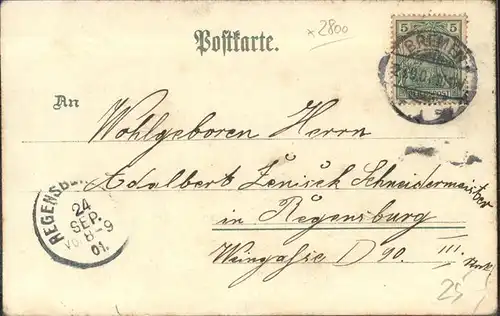 x 2800
Postkarte.
5 5
BREMEN
An
Wohlgeboren Herrn
Adalbert Zenisek Schneidermeister
in Regensburg
Weingaßse D 90. III.
REGENSB
24
SEP.
8-9
01.
25